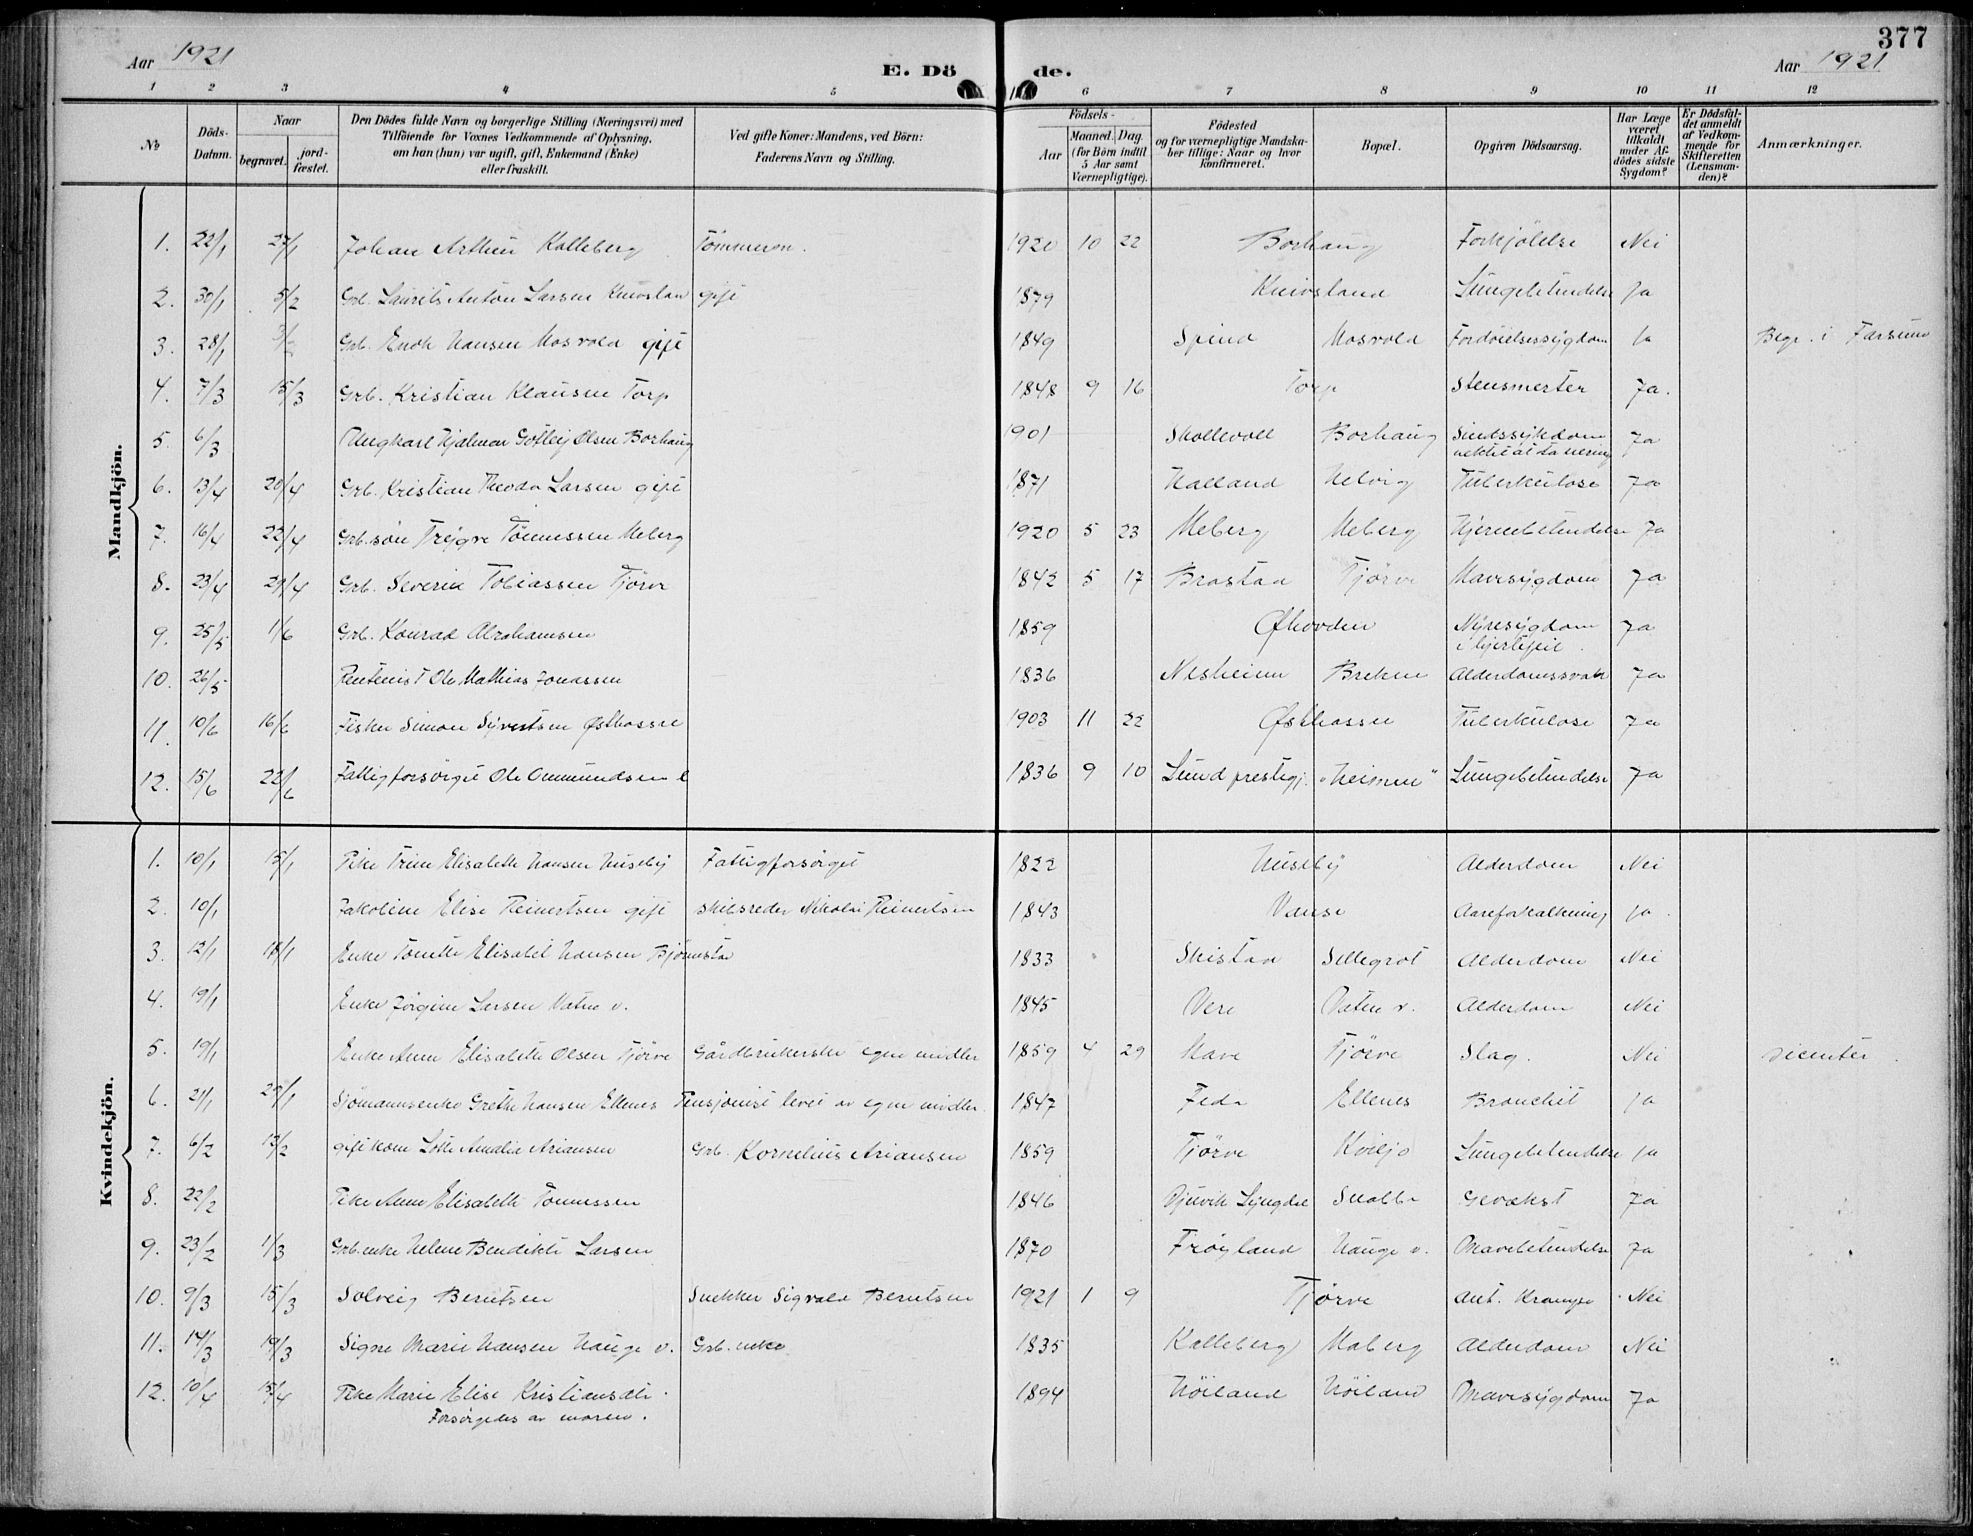 Aar 1921
E. Dö de.
377
Aar 1921
1 2 3 4 5 6 7 8 9 10 11 12
№
Döds-Datum.
Naar begravet. jordfæstet.
Den Dödes fulde Navn og borgerlige Stilling (Næringsvei) med
Tilföiende for Voxnes Vedkommende af Oplysning,
om han (hun) var ugift, gift, Enkemand (Enke)
eller fraskilt.
Ved gifte Koner: Mandens, ved Börn:
Faderens Navn og Stilling.
Födsels-
Aar Maaned. Dag.
(for Börn indtil
5 Aar samt
Værnepligtige).
Födested
og for værnepligtige Mandskaber tillige: Naar og hvor
konfirmeret.
Bopæl.
Opgiven Dödsaarsag.
Har Læge
været
tilkaldt
under Afdödes sidste
Sygdom?
Er Dödsfaldet anmeldt
af Vedkommende for
Skifteretten
(Lensmanden)?
Anmærkninger.
Mandkjön.
1. 22/1 27/1 Johan Arthur Kalleberg Tömmerm. 1920 10 22 Borhaug Forkjölelse Nei
2. 30/1 5/2 Grb. Laurits Anton Larsen Knivsland gift 1879 Knivsland Lungebetendelse Ja
3. 28/1 3/2 Grb. Enok Hansen Mosvold gift 1849 Spind Mosvold Fordöielsessygdom Ja Begr. i Farsund
4. 7/3 15/3 Grb. Kristian Klausen Torp 1848 9 16 Torp Stensmerter Ja.
5. 6/3 Ungkarl Hjalmar Gotleif Olsen Borhaug 1901 Skollevoll Borhaug Sindssykdom Ja
6. 13/4 20/4 Grb. Kristian Theodor Larsen gift 1871 Halland Helvig Tuberkulose Ja
7. 16/4 22/4 Grb. sön Trygve Tönnessen Meberg 1920 5 23 Meberg Meberg Hjernebetendelse Ja
8. 23/4 29/4 Grb. Severin Tobiassen Tjörve 1842 5 17 Brastad Tjörve Mavesygdom Ja
9. 25/5 1/6 Grb. Konrad Abrahamsen 1859 Øfhovden Nyresygdom Ja
i hjertefeil.
10. 26/5 Rentenist Ole Mathias Jonassen 1836 Nesheim Brekne Alderdomssvak Ja
11. 10/6 16/6 Fisker Simon Syvertsen Østhassel 1903 11 22 Østhassel Tuberkulose Ja
12. 15/6 22/6 Fattigforsörget Ole Ommundsen 1836 9 10 Lund prestegj. "Heimen" Lungebetendelse Ja
Kvindekjön.
1. 10/1 15/1 Pike Trine Elisabeth Hansen Huseby Fattigforsörget 1822 Huseby Alderdom Nei
2. 10/1 Jakobine Elise Reinertsen gift Skibsreder Nikolai Reinertsen 1843 Vanse Aareforkalkning Ja.
3. 12/1 18/1 Enke Tomille Elisabet Hansen Björnstad 1833 Skistad Sellegrot Alderdom Nei
4. 19/1 Enke Jörgine Larsen Vatne v. 1845 Vere Vatne v. Alderdom Nei
5. 19/1 Enke Anne Elisabeth Olsen Tjörve Gårdbrukerske egne midler 1859 4 29 Have Tjörve Slag. Nei
6. 21/1 29/1 Sjömannsenke Grethe Hansen Ellenes Pensjonist levet av egne midler. 1847 Feda Ellenes Bronchit Ja
7. 6/2 12/2 gift kone Lotte Amalie Ariansen Grb. Kornelius Ariansen 1859 Tjörve Kviljo Lungebetendelse Ja
8. 22/2 Pike Anne Elisabeth Tönnessen 1846 Djuvik Lyngdal Snalle Gevækst Ja
9. 23/2 1/3 Grb. enke Helene Bendikte Larsen 1870 Fröyland Hauge v. Mavebetendelse Ja
10. 9/3 15/3 Solveig Berntsen Snekker Sigvald Berntsen 1921 1 9 Tjörve Ant. Krampe Nei
11. 14/3 19/3 Signe Marie Hansen Hauge v. Grb. enke 1835 Kalleberg Maberg Alderdom Nei
12. 10/4 15/4 Pike Marie Elise Kristiansdtr. 1894 Höiland Höiland Mavesygdom Ja
Forsörgedes av moren.